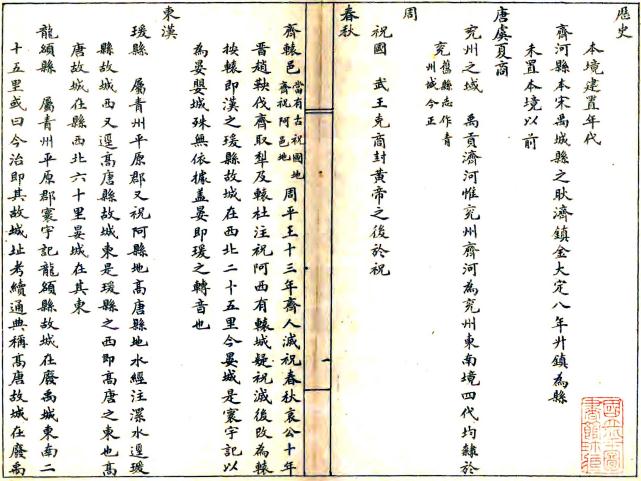 歷史
本境建置年代
齊河縣本宋禹城縣之耿濟鎮金大定八年升鎮為縣
未置本境以前
唐虞夏商
兗州之域　禹貢濟河惟兗州齊河為兗州東南境四代均隸於
兗舊縣志作青州域今正
周
祝國　武王克商封黃帝之後於祝
春秋
齊轅邑當有古祝國地齊祝阿邑地　周平王十三年齊人滅祝春秋哀公十年
晉趙鞅伐齊取犁及轅杜注祝阿西有轅城疑祝滅後改為轅
按轅即漢之瑗縣故城在西北二十五里今晏城是寰宇記以
為晏嬰城殊無依據蓋晏即瑗之轉音也
東漢
瑗縣　屬青州平原郡又祝阿縣地高唐縣地水經注漯水逕瑗
縣故城西又逕高唐縣故城東是瑗縣之西即高唐之東也高
唐故城在縣西北六十里晏城在其東
龍頟縣　屬青州平原郡寰宇記龍頟縣故城在廢禹城東南二
十五里或曰今治即其故城址考續通典稱高唐故城在廢禹